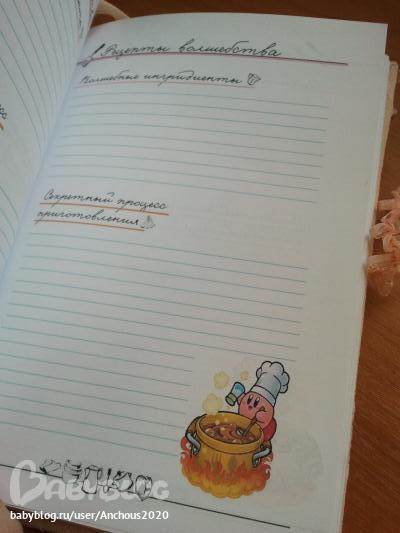 Рецепты волшебства
Волшебные ингридиенты
Секретный процесс
приготовления
BABYBLOG
babyblog.ru/user/Anchous2020